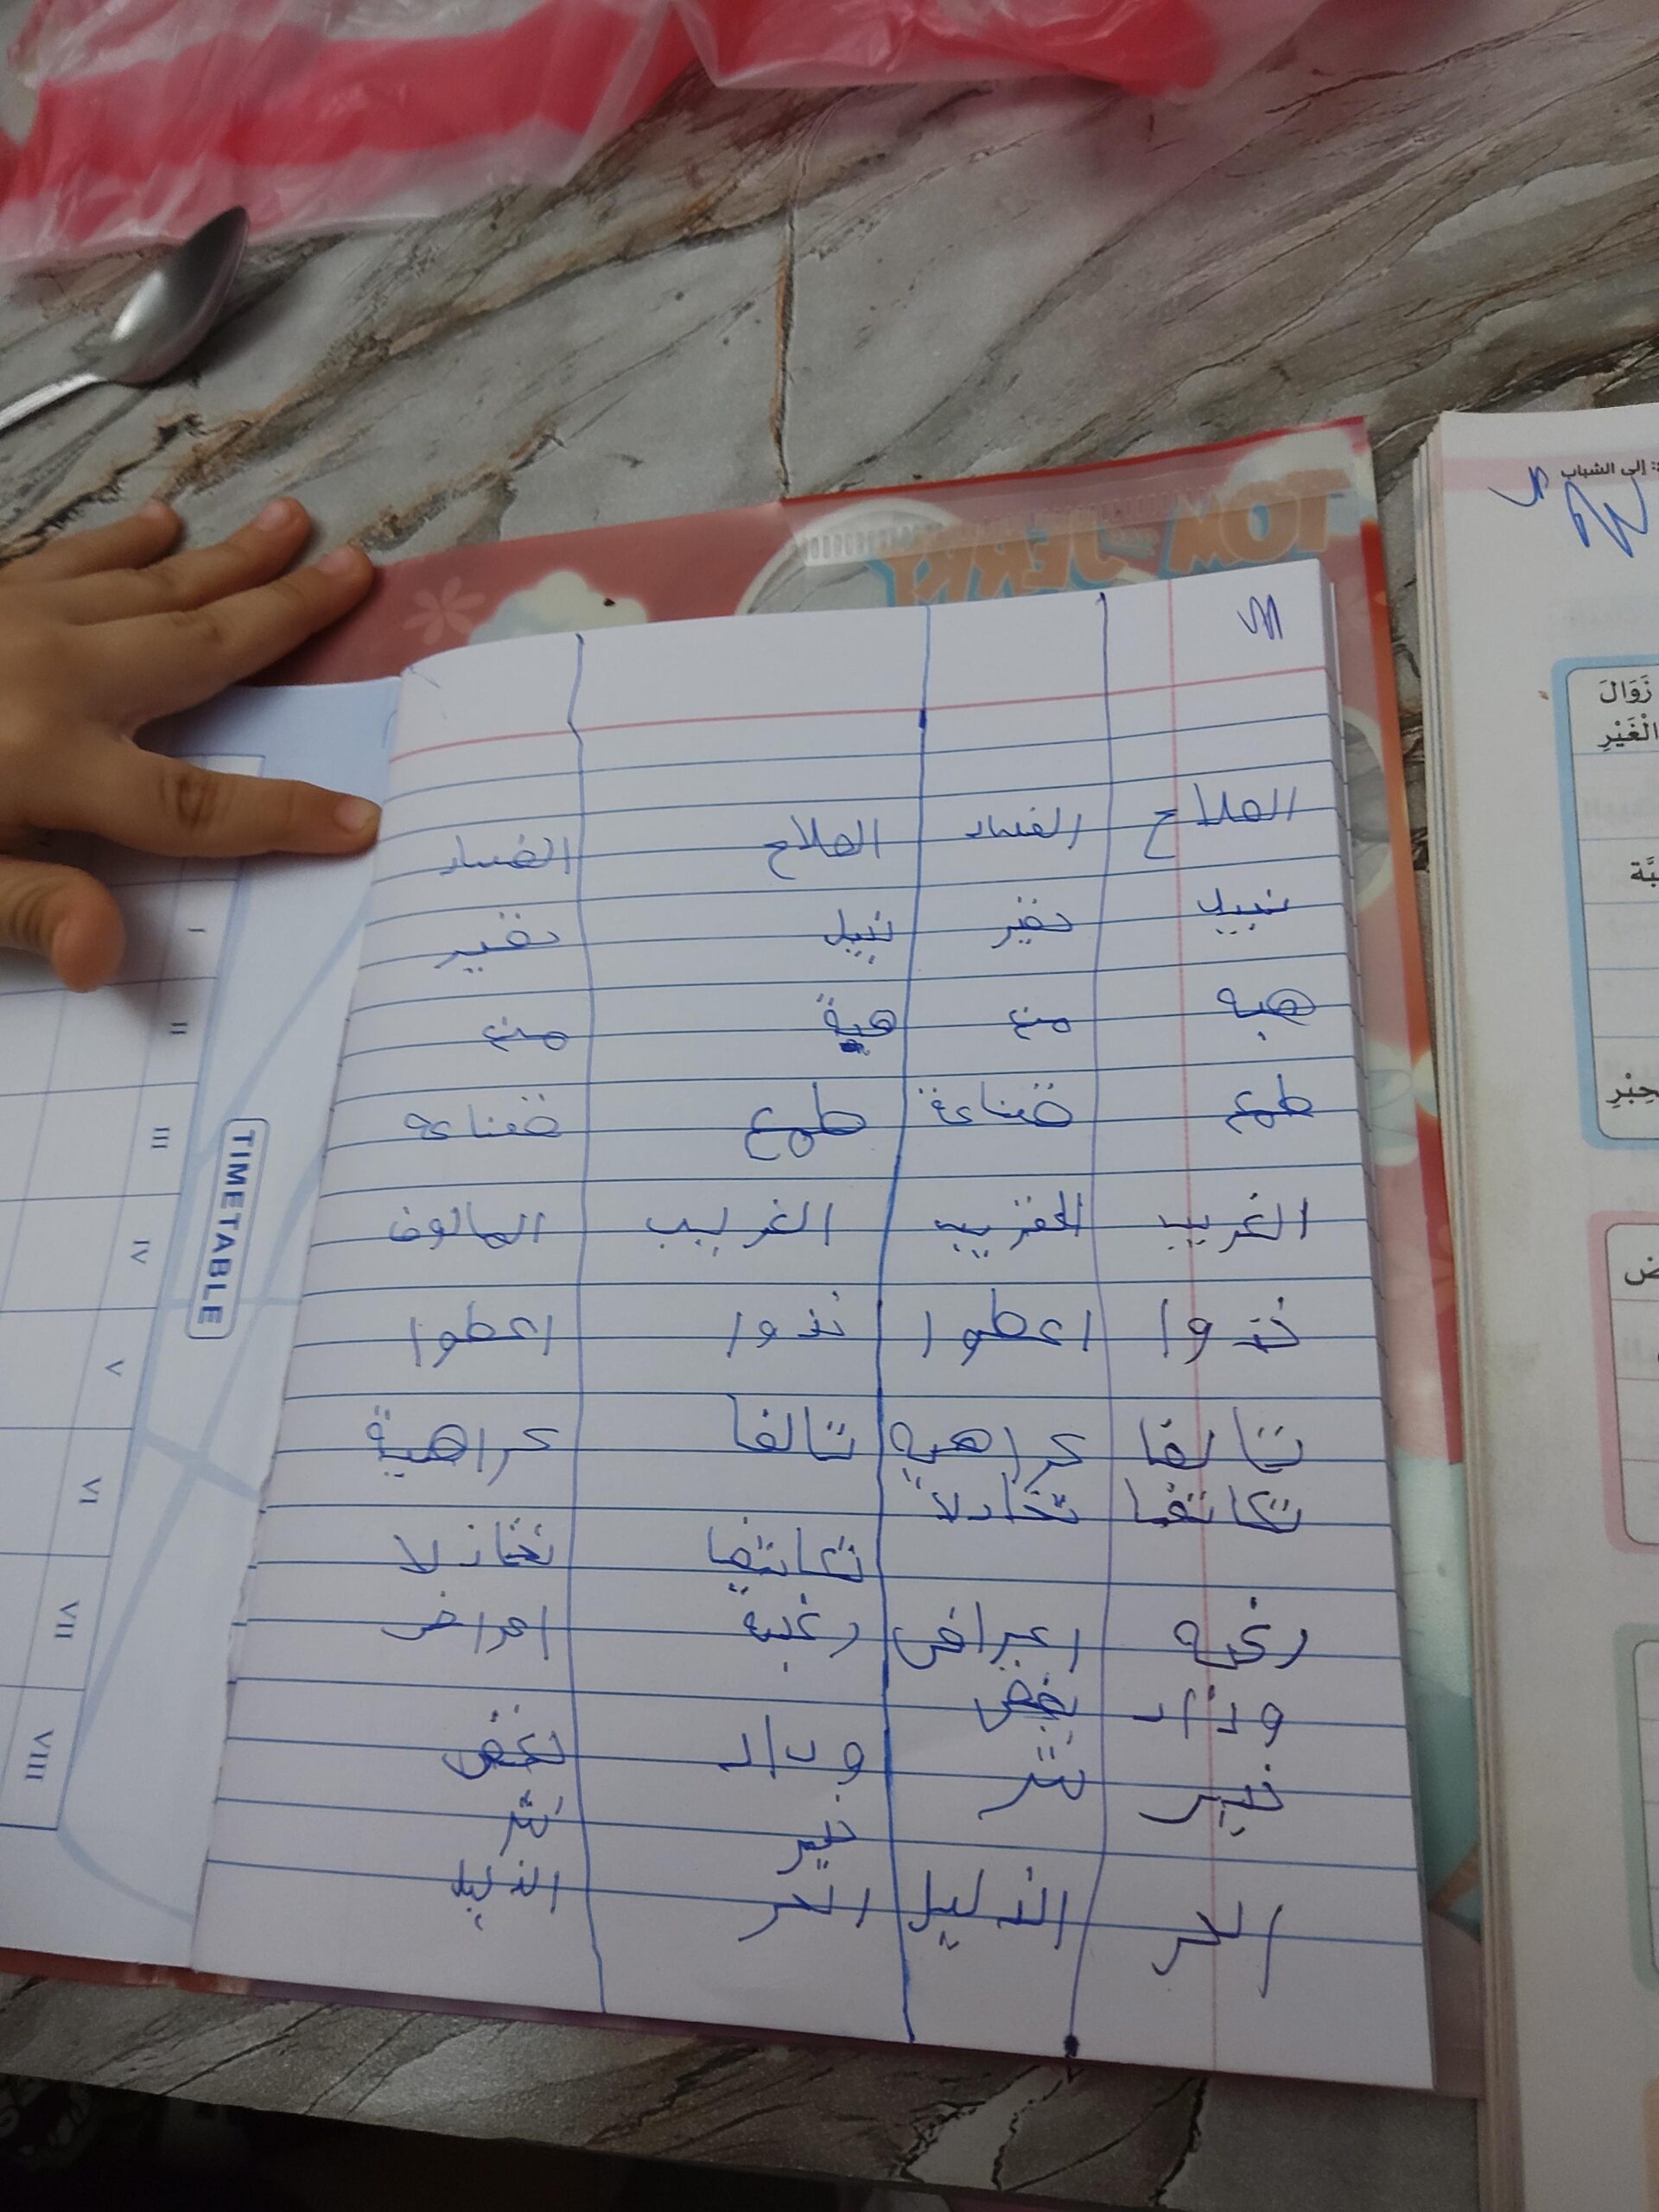 TOM JERRY
إلى الشباب
زَوَالَ
الْغَيْرِ
حِبْرِ
الصلاح الفساد الصلاح الفساد
نبيل حقير نبيل حقير
هبه منع هبة منع
طمع قناعة طمع قناعة
الغريب الغريب المالوف
خذوا اعطوا خذوا اعطوا
تالفا كراهية تالفا كراهية
تكاتفا تخادلا
تكاتفا تخاذلا
رغبه اعراض رغبة اعراض
وداد بغض
وداد بغض
خير شر
خير شر
الحر الذليل الحر الذليل
TIMETABLE
I
II
III
IV
V
VI
VII
VIII